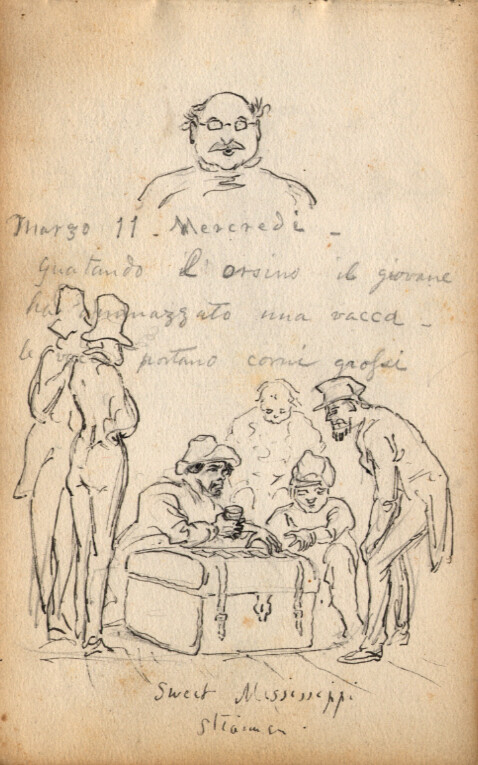 Marzo 11 - Mercredi -
Guatando il orsino il giovane
ha ammazzato una vacca -
le portano corni grossi
Sweet Mississippi
Steamer.